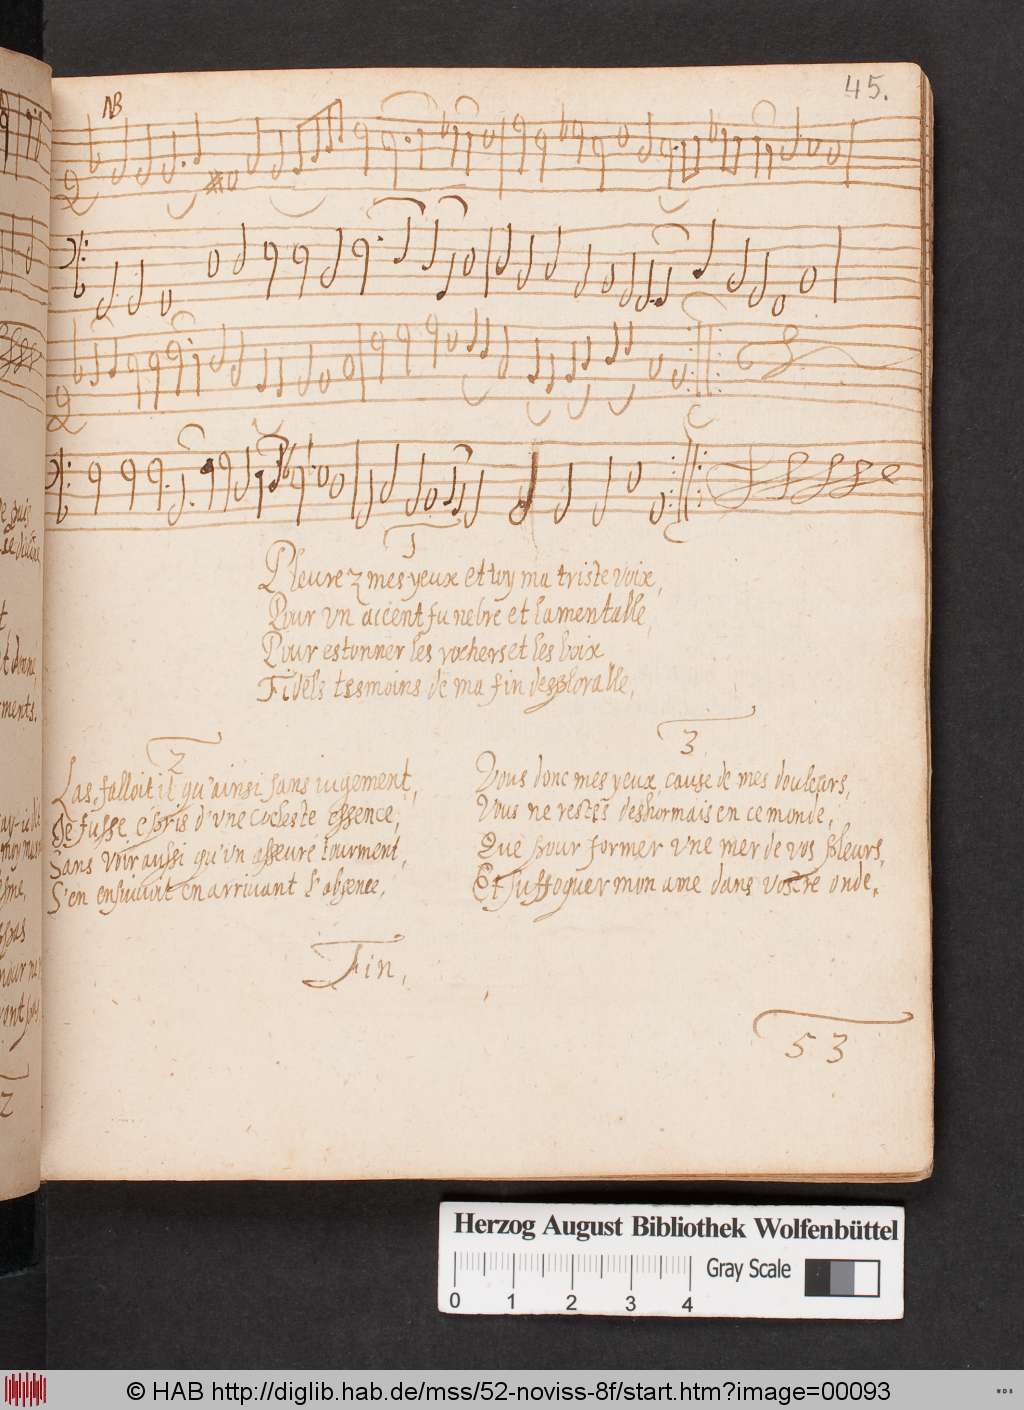 45.
NB
1
Pleurez mes yeux et toy ma triste voix,
Pour vn accent funebre et lamentable,
Pour estonner les rochers et les boix
Fidels tesmoins de ma fin desplorable,
2
Las, falloit il qu'ainsi sans iugement,
Je fusse espris d'vne coeleste essence,
Sans voir aussi qu'vn asseuré tourment,
S'en ensuiuint en arriuant l'absence,
3
Vous donc mes yeux, cause de mes douleurs,
Vous ne restés deshormais en ce monde,
Que pour former vne mer de vos pleurs,
Et suffoquer mon ame dans vostre onde,
Fin,
53
Herzog August Bibliothek Wolfenbüttel
Gray Scale
0 1 2 3 4
© HAB http://diglib.hab.de/mss/52-noviss-8f/start.htm?image=00093